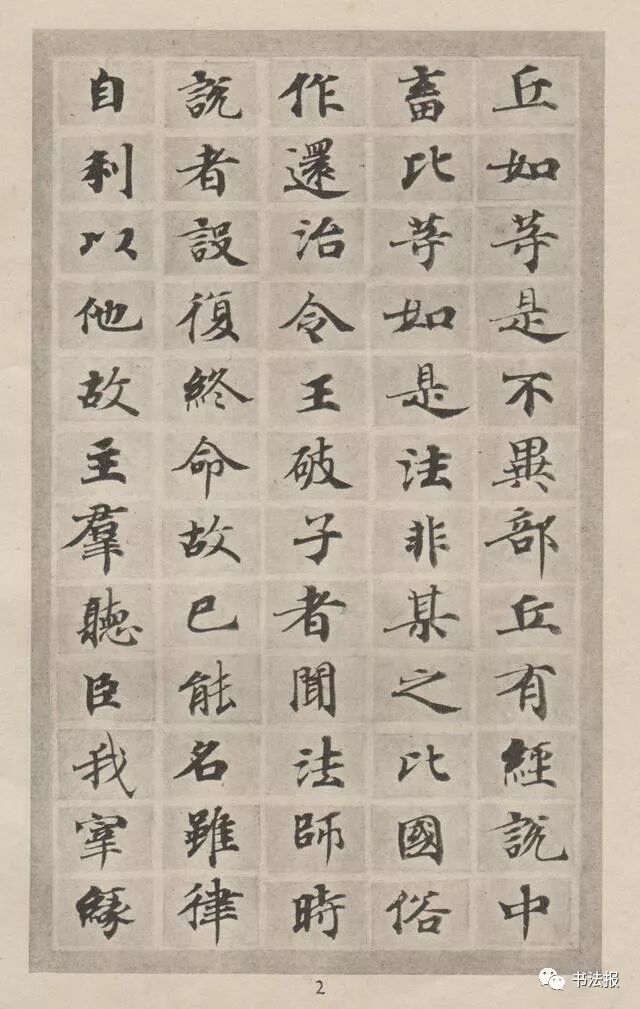 丘如等是不異部丘有經說中
畜比等如是法非某之比國俗
作還治令王破子者聞法師時
說者設復終命故已能名雖律
自利以他故主羣聽臣我寧緣
2
书法报